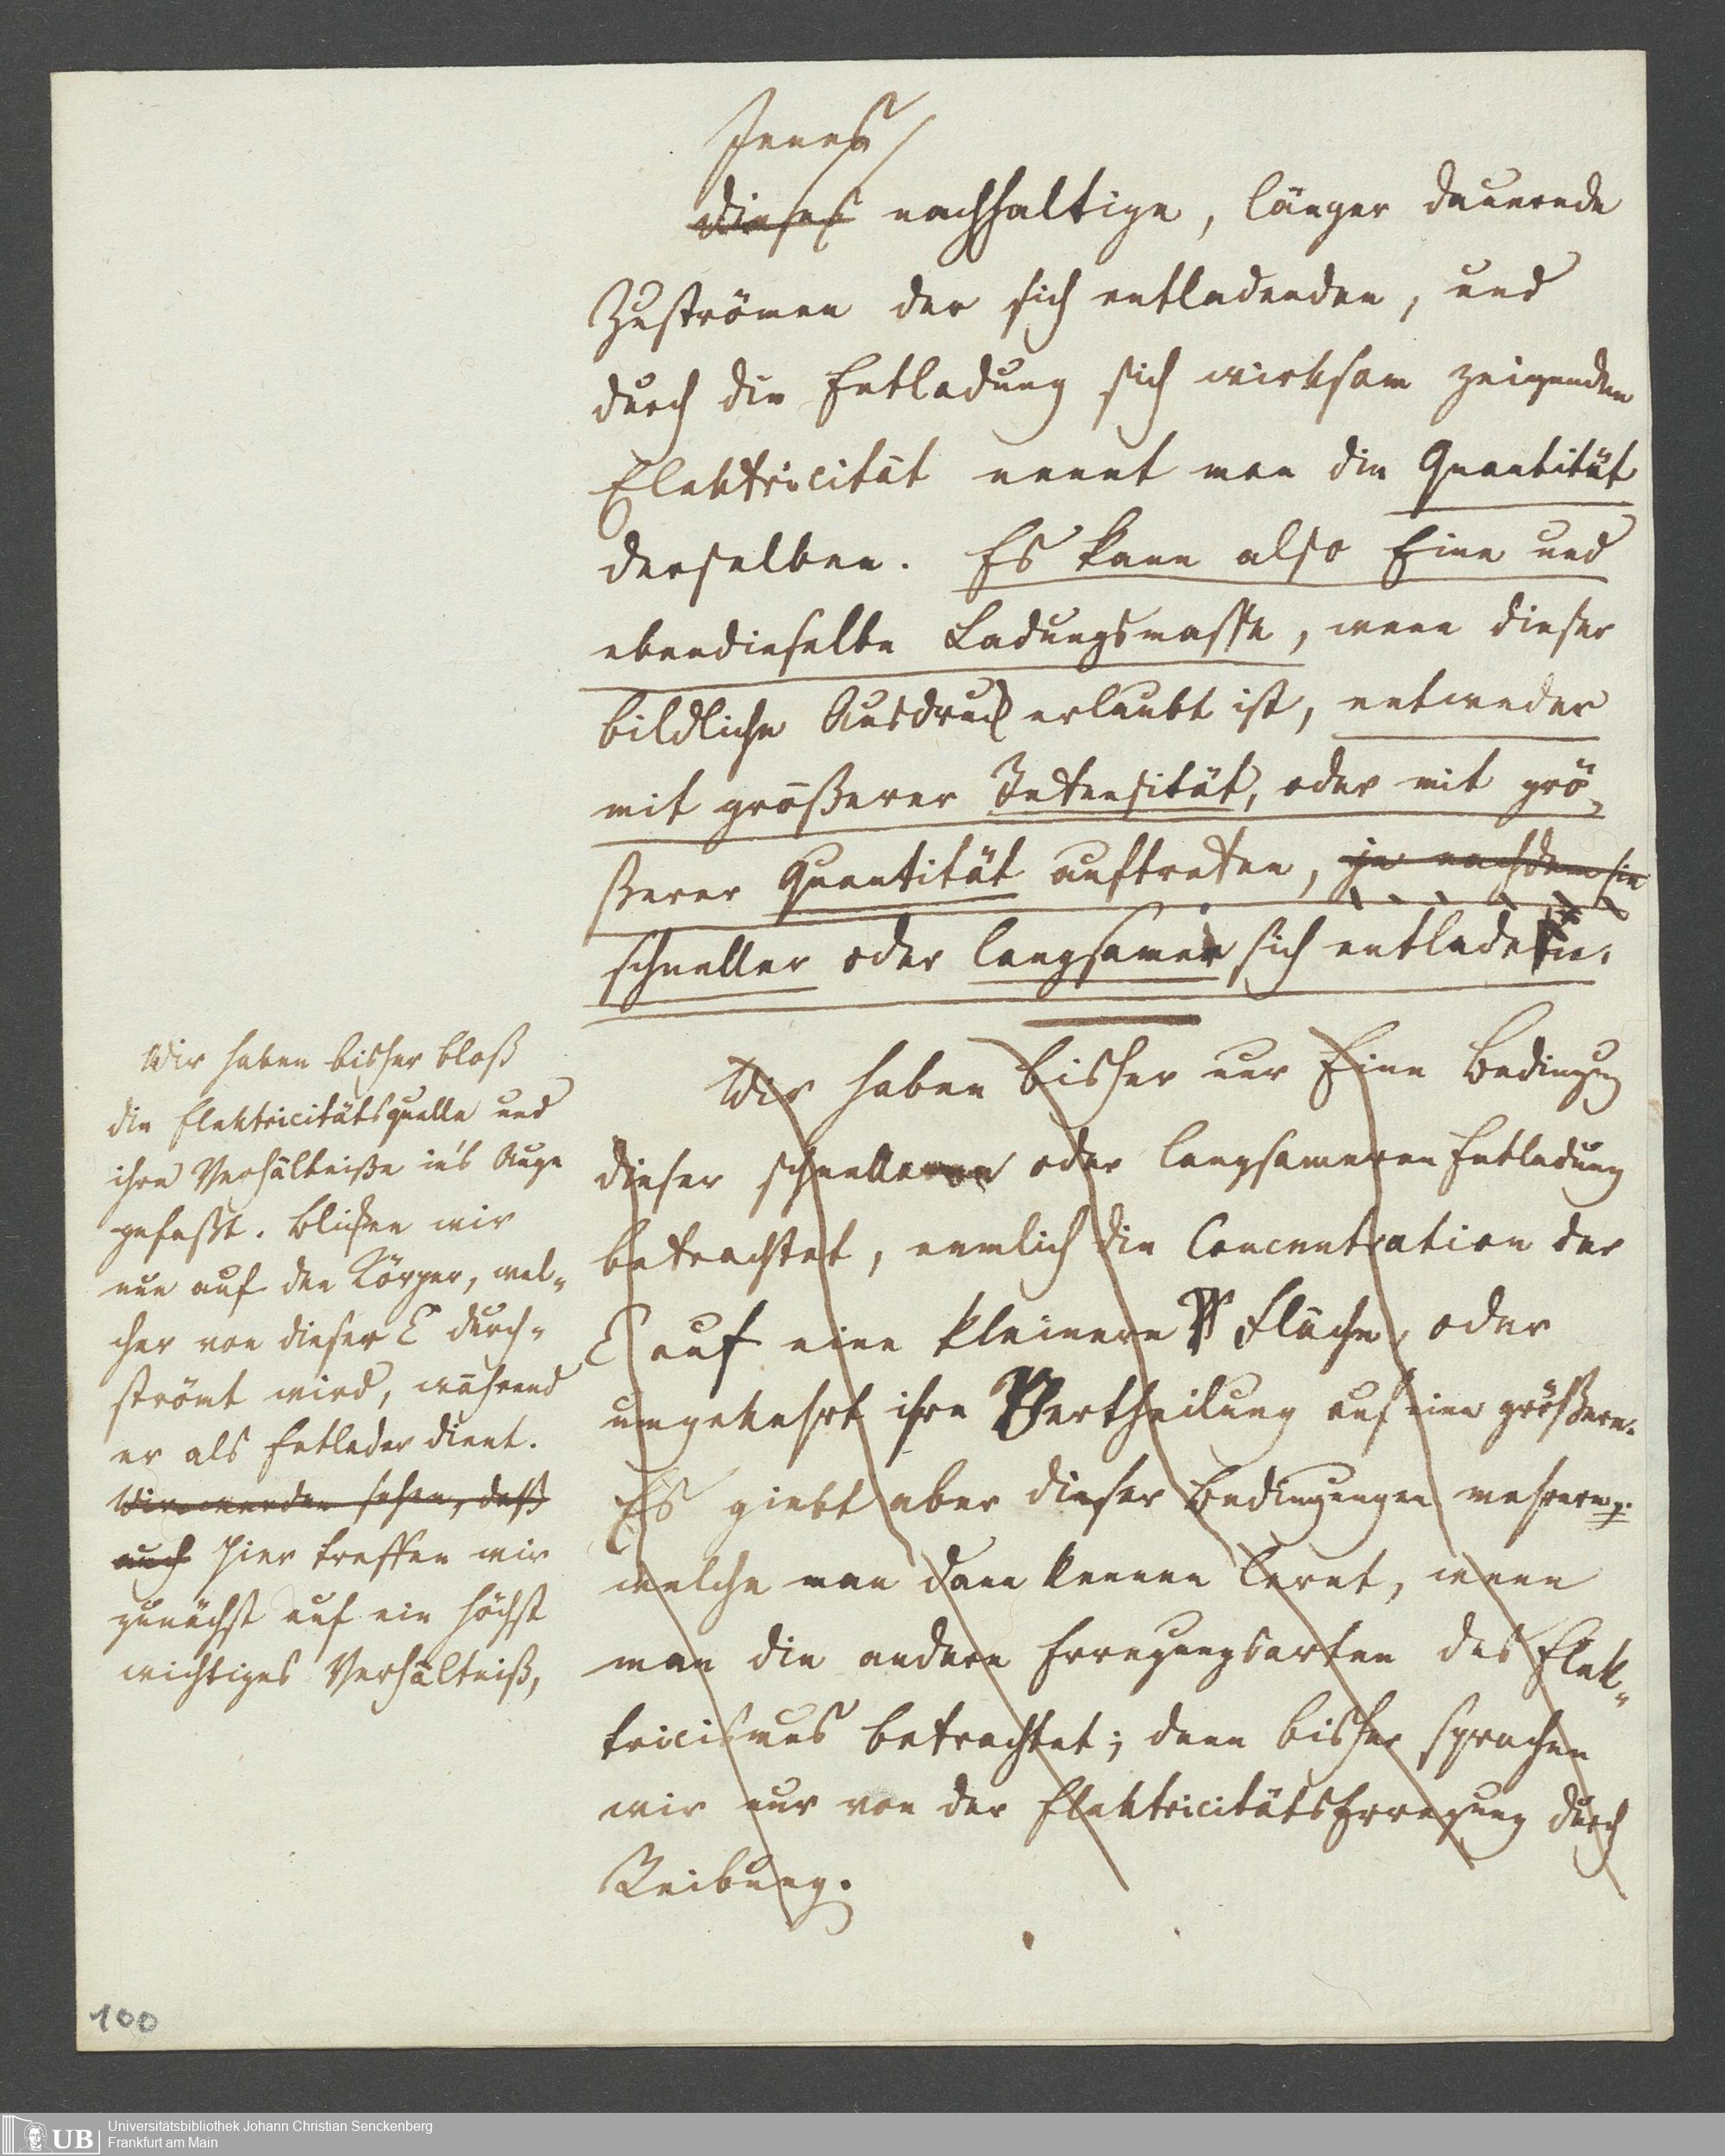 Jenes
Dieses nachhaltige, länger dauernde
Zuströmen der sich entladenden, und
durch die Entladung sich wirksam zeigenden
Elektricität nennt man die Quantität
derselben. Es kann also Eine und
ebendieselbe Ladungsmasse, wenn dieser
bildliche Ausdruck erlaubt ist, entweder
mit größerer Intensität, oder mit grö-
ßerer Quantität auftreten, je nachdem sie
schneller oder langsamer sich entladet.
Wir haben bisher bloß
die Elektricitätsquelle und
ihre Verhältniße in's Auge
gefaßt. Blicken wir
nun auf den Körper, wel-
cher von dieser E durch-
strömt wird, während
er als Entlader dient.
Wir werden sehen, daß
auch Hier treffen wir
zunächst auf ein höchst
wichtiges Verhältniß,
Wir haben bisher nur Eine Bedingung
dieser schnelleren oder langsameren Entladung
betrachtet, nemlich die Concentration der
E auf eine kleinere Fläche, oder
umgekehrt ihre Vertheilung auf eine größere.
Es giebt aber dieser Bedingungen mehrere,
welche man dann kennen lernt, wenn
man die andern Erregungsarten des Elek-
tricismus betrachtet; denn bisher sprachen
wir nur von der ElektricitätsErregung durch
Reibung.
100
UB
Universitätsbibliothek Johann Christian Senckenberg
Frankfurt am Main